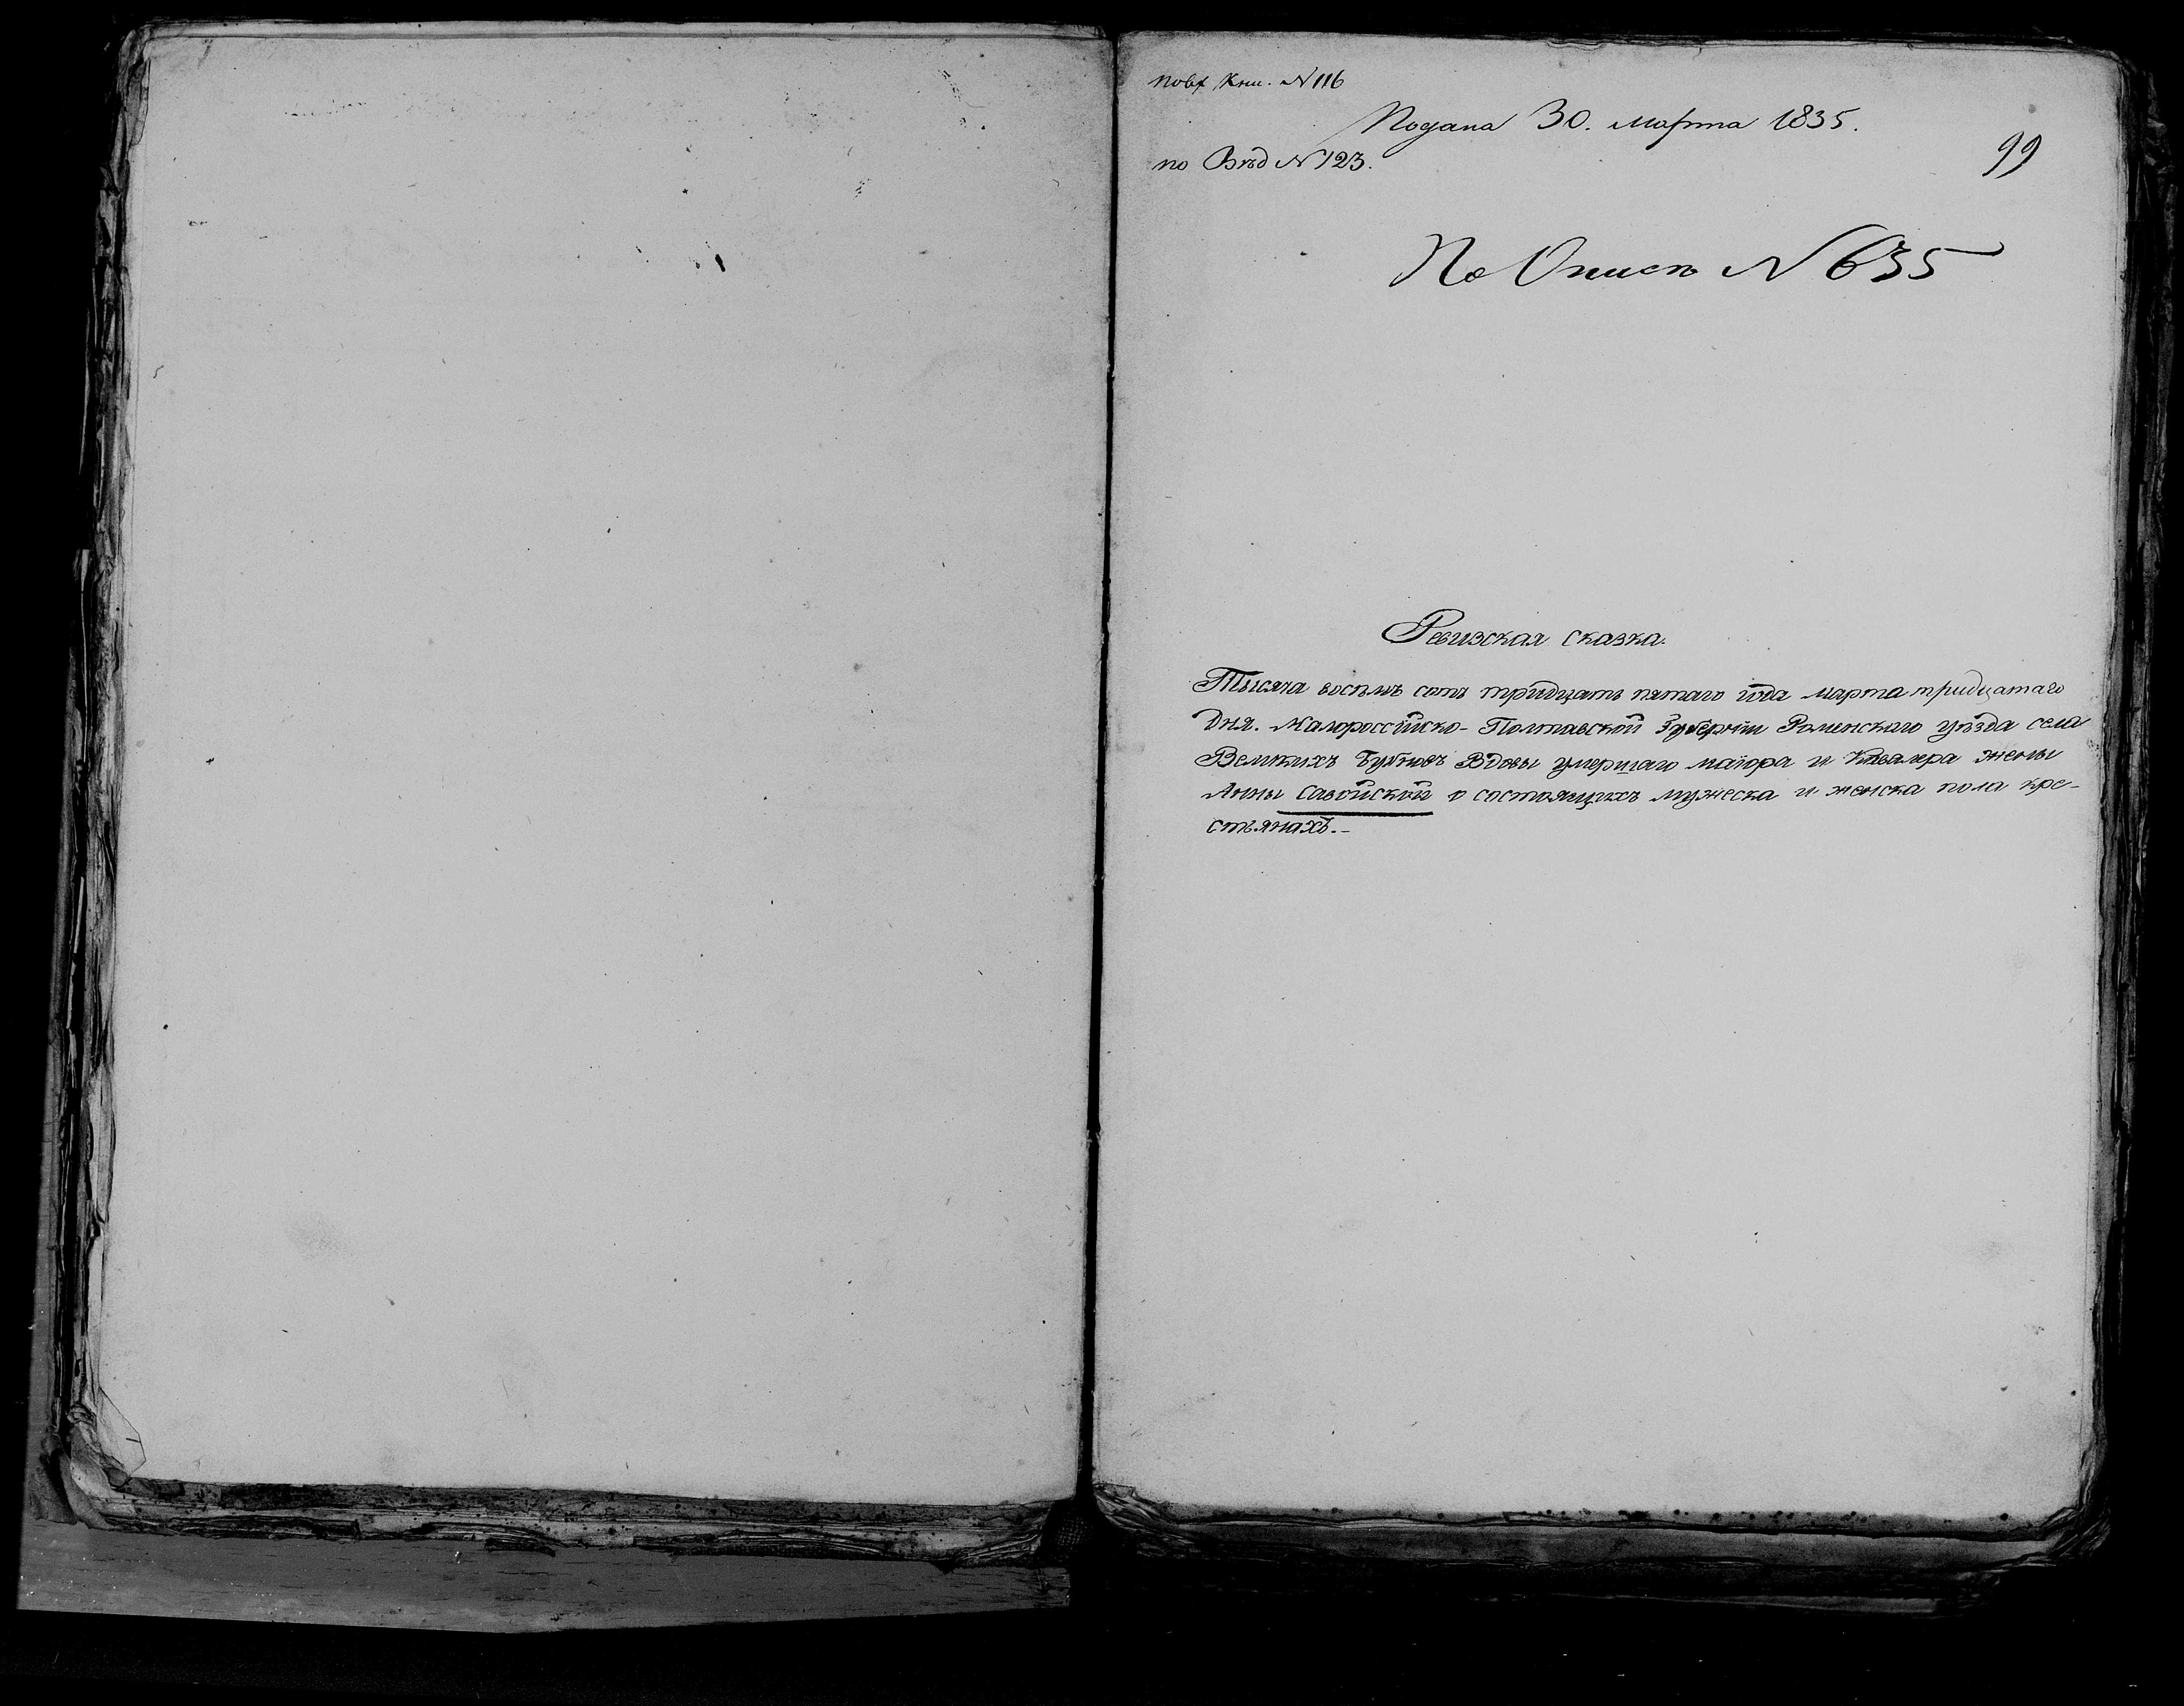 Кни. N 116
Подана 30. Марта 1835.
99
по Вѣд N 123.
По Описи N 635
Ревизская сказка.
Тысяча восемъ сотъ тридцать пятаго года марта тридцатаго
дня. Малороссійско-Полтавской Губерніи Роменского уѣзда села
Великихъ Бубновъ Вдовы умершаго маіора и Кавалера жены
Анны Савойской о состоящихъ мужеска и женска пола кре-
стьянахъ.-